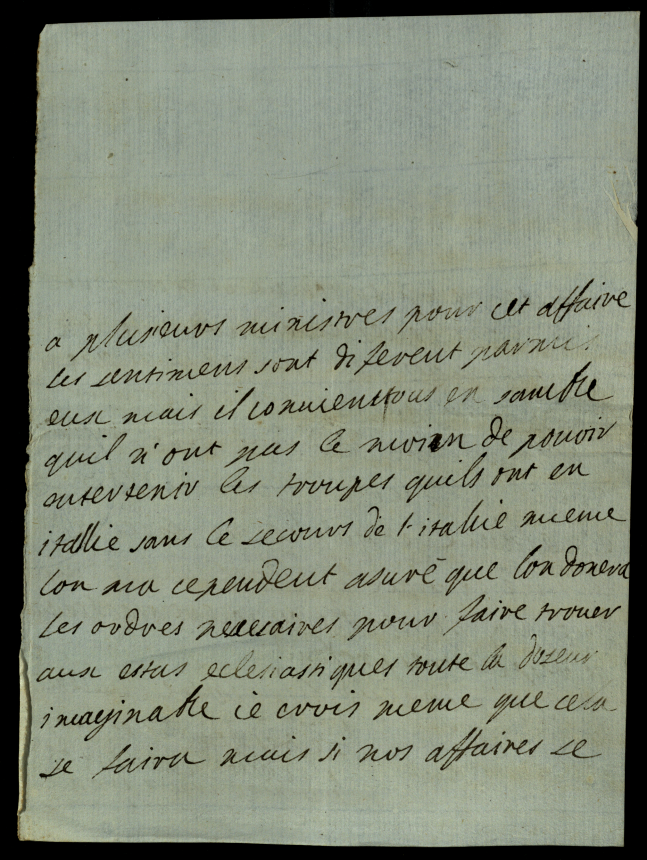 a plusieurs ministres pour cet affaire
les sentimens sont diferent parmis
eux mais il convienttous en samble
quil n'ont pas le moien de pouvoir
entertenir les troupes quils ont en
itallie sans le secours de l'itallie mueme
lon ma cependent asuré que lon donera
les ordres necesaires pour faire trouer
aux estas eclesiastiques toute la doseur
imaginable ie crois meme que cela
se faira mais si nos affaires se